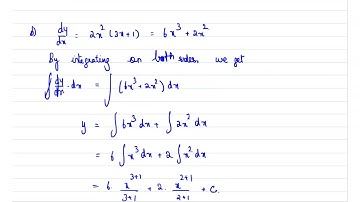 d) dy/dx = 2x² (3x+1) = 6x³ + 2x²
By integrating on both sides, we get
∫ dy/dx · dx = ∫ (6x³ + 2x²) dx
y = ∫ 6x³ dx + ∫ 2x² dx
= 6 ∫ x³ dx + 2 ∫ x² dx
= 6 · x³⁺¹/3+1 + 2 · x²⁺¹/2+1 + c.